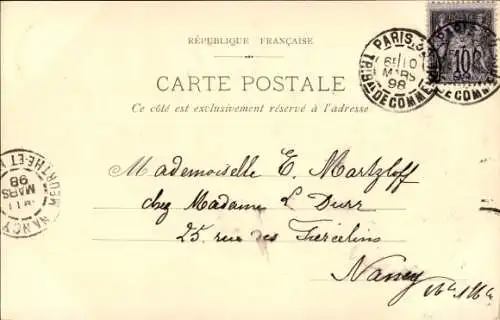 RÉPUBLIQUE FRANÇAISE
CARTE POSTALE
Ce côté est exclusivement réservé à l'adresse
PARIS
10
MARS
98
TRIB. DE COMMERCE
10
NANCY
MEURTHE-ET-M
11
MARS
98
Mademoiselle E. Martzloff
chez Madame L Durr
25 rue des Tiercelins
Nancy